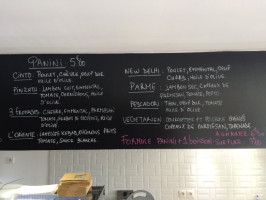 PANINI 5€
CINTO: POULET, CHÈVRE, OEUF DUR
HUILE D'OLIVE
PINZUTU: JAMBON CUIT, EMMENTAL,
TOMATE, CORNICHONS, HUILE
D'OLIVE
3 FROMAGES: CHÈVRE, EMMENTAL, PARMESAN
HUILE
D'OLIVE
L'ORIENTE: KEBAB, OIGNONS
TOMATE, SAUCE BLANCHE
NEW DELHI: POULET, EMMENTAL, OEUF
CURRY, HUILE D'OLIVE
PARME: JAMBON SEC, COPEAUX DE
PARMESAN, TOMATE, PESTO
PESCADORE: THON, OEUF DUR, TOMATE
HUILE D'OLIVE
VEGETARIEN: COURGETTES ET POIVRONS GRILLÉS
COPEAUX DE PARMESAN, TAPENADE
FORMULE PANINI + 1 BOISSON